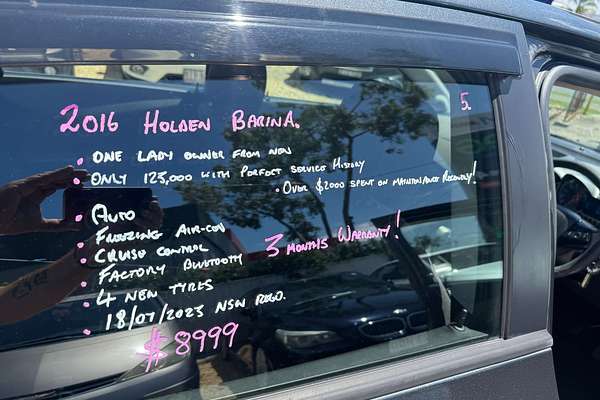 5.
2016 HOLDEN BARINA.
• ONE LADY OWNER FROM NEW
• ONLY 123,000 WITH PERFECT SERVICE HISTORY
• OVER $2000 SPENT ON MAINTENANCE RECENTLY!
• AUTO
• FREEZING AIR-CON
• CRUISE CONTROL
3 MONTHS WARRANTY!
• FACTORY BLUETOOTH
• 4 NEW TYRES
• 18/07/2023 NSW REGO.
$8999